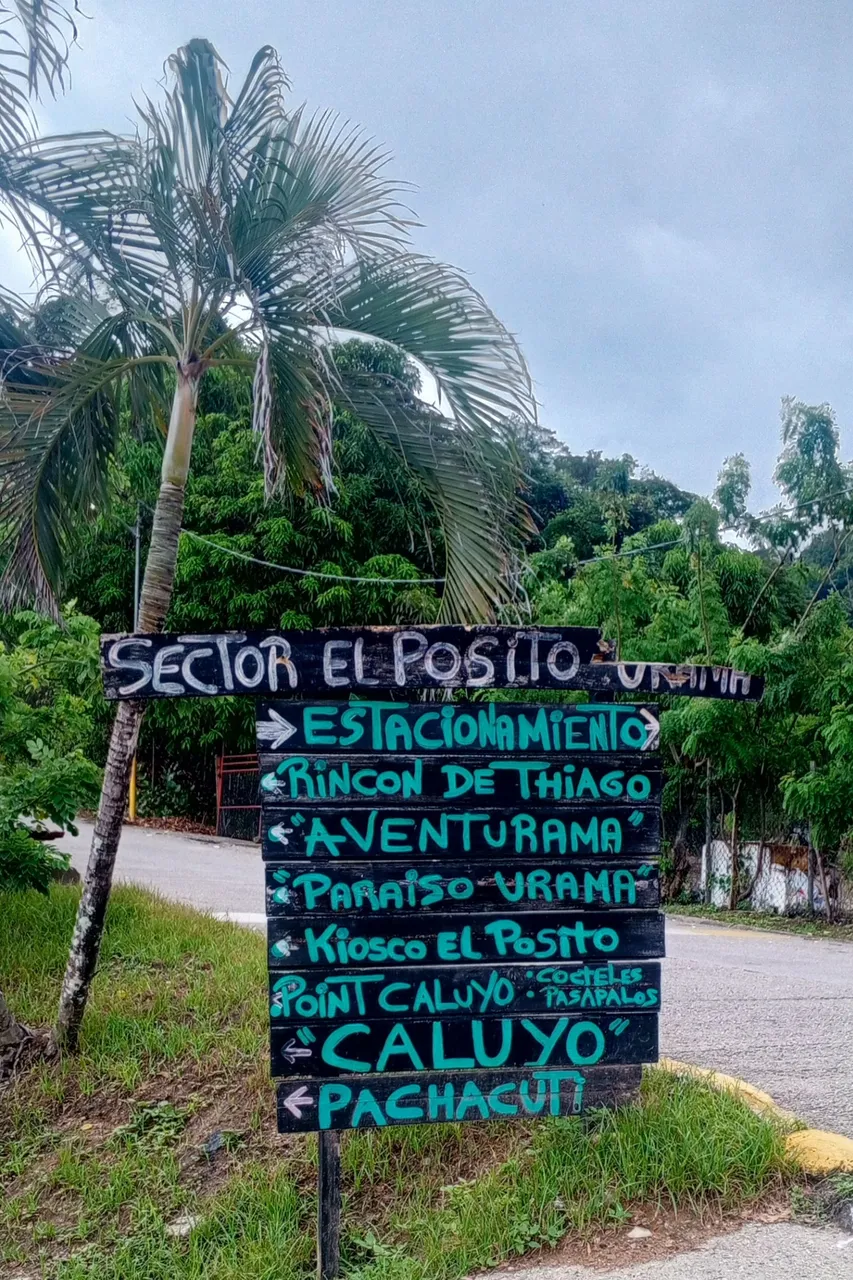 SECTOR EL POSITO URAMA
ESTACIONAMIENTO
RINCON DE THIAGO
"AVENTURAMA"
"PARAISO URAMA"
KIOSCO EL POSITO
POINT CALUYO : COCTELES
PASAPALOS
"CALUYO"
PACHACUTI